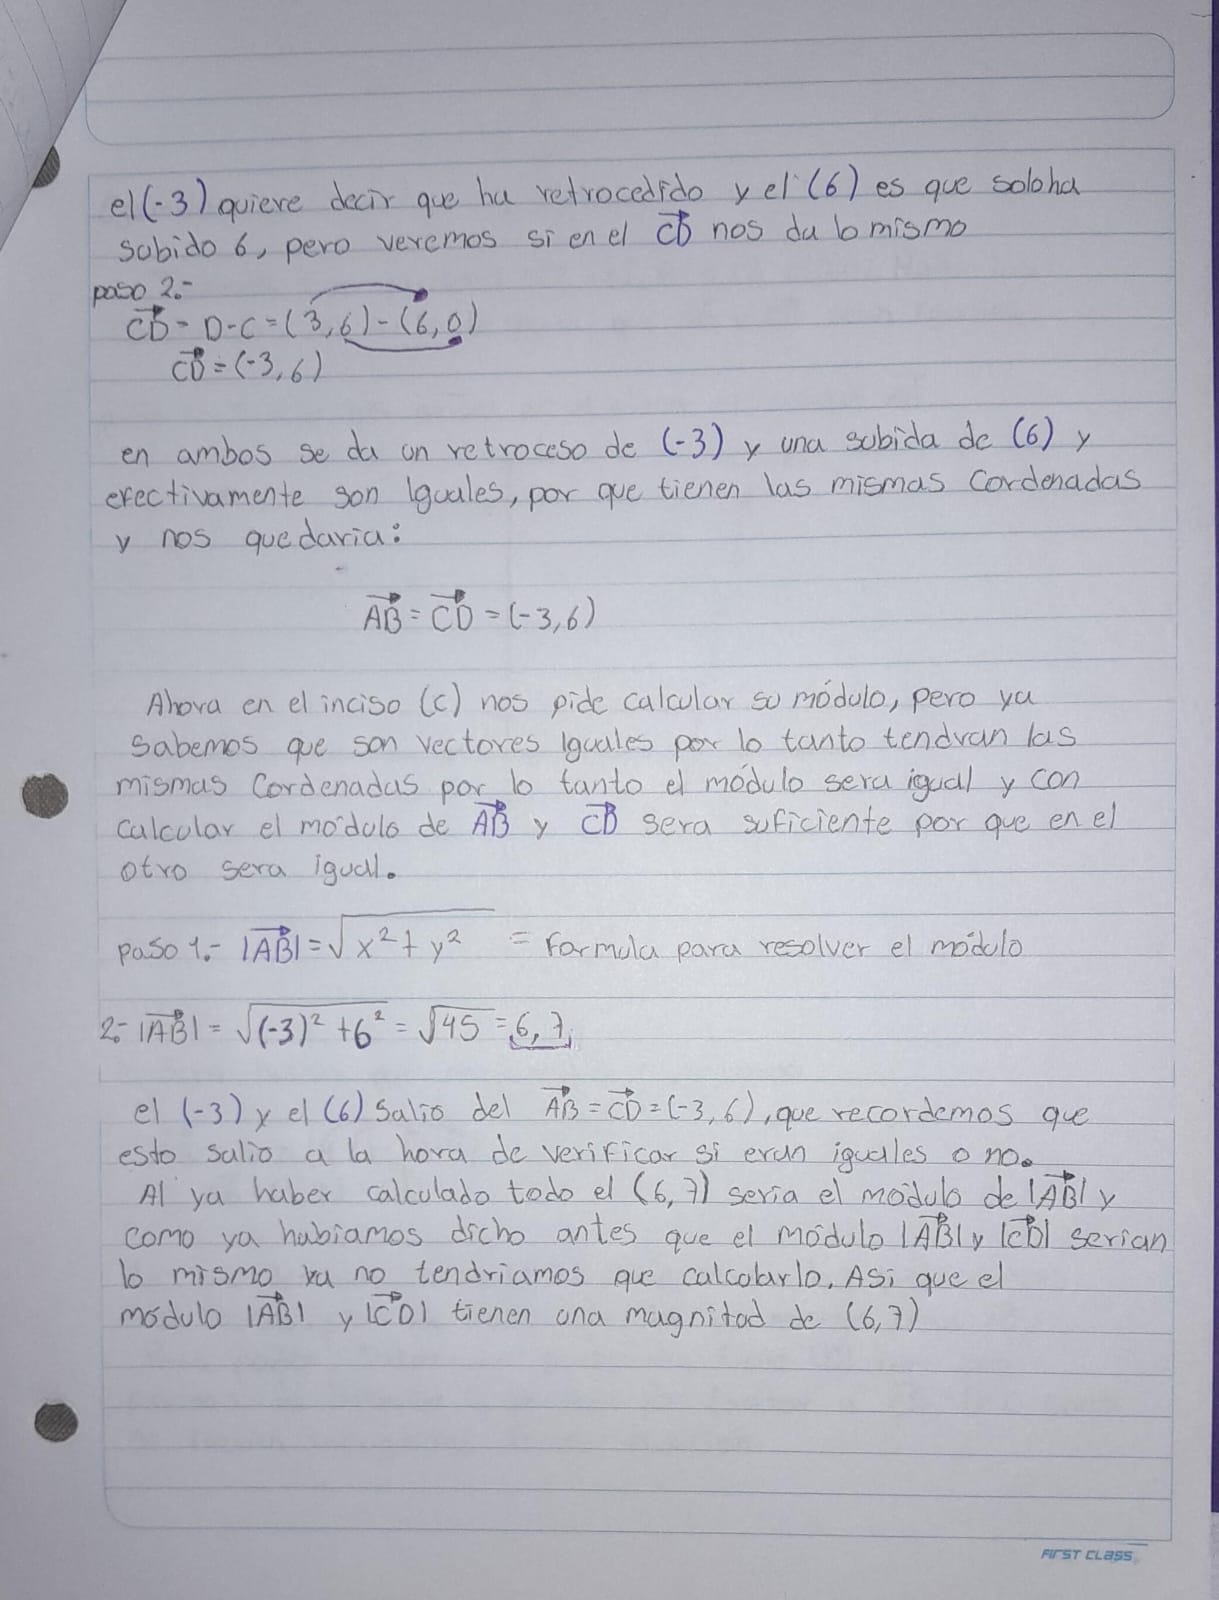 el (-3) quiere decir que ha retrocedido y el (6) es que solo ha
subido 6, pero veremos si en el CD nos da lo mismo
paso 2.-
CD = D-C = (3,6) - (6,0)
CD = (-3,6)
en ambos se da un retroceso de (-3) y una subida de (6) y
efectivamente son Iguales, por que tienen las mismas Cordenadas
y nos quedaria:
AB = CD = (-3,6)
Ahora en el inciso (c) nos pide calcular su módulo, pero ya
Sabemos que son vectores Iguales por lo tanto tendran las
mismas Cordenadas por lo tanto el módulo sera igual y con
calcular el módulo de AB y CD sera suficiente por que en el
otro sera igual.
paso 1.- |AB| = √x² + y² = Formula para resolver el módulo
2.- |AB| = √(-3)² + 6² = √45 = 6,7
el (-3) y el (6) Salio del AB = CD = (-3,6), que recordemos que
esto salio a la hora de verificar si eran iguales o no.
Al ya haber calculado todo el (6,7) seria el módulo de |AB| y
como ya habiamos dicho antes que el módulo |AB| y |CD| serian
lo mismo ya no tendriamos que calcularlo. ASi que el
módulo |AB| y |CD| tienen una magnitad de (6,7)
FIrST CLaSS